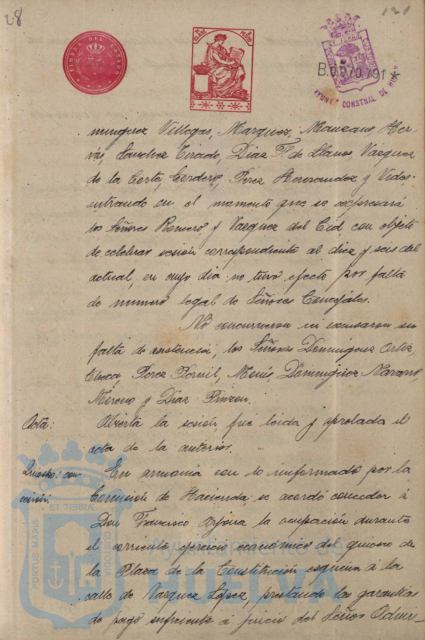 28
121
B.0.570.791*
minguez Villegas, Marquez, Manzano, Her-
vás, Sanchez Tirado, Diaz F. de Llanos, Vazquez
de la Corte, Cordero, Perez Hernandez y Vides;
entrando en el momento que se expresará
los Señores Romero y Vazquez del Cid, con objeto
de celebrar sesión correspondiente al diez y seis del
actual, en cuyo dia no tuvo efecto por falta
de número legal de Señores Concejales.
No concurrieron ni excusaron su
falta de asistencia, los Señores Dominguez Ortiz,
Perez Dominguez Navarro,
Moreno y Diaz Pinzon.
Acta:
Abierta la sesión fué leida y aprobada el
acta de la anterior.
En armonia con lo informado por la
Comisión de Hacienda se acordó conceder á
Don Francisco Arjona la ocupación durante
el corriente ejercicio económico del quiosco de
la Plaza de la Constitución esquina á la
calle de Vazquez Lopez, prestando las garantias
de pago suficiente á juicio del Señor Admi-
PORTUS MARIS
ET TERRAE
CUSTODIA
Ayuntamiento de
HUELVA